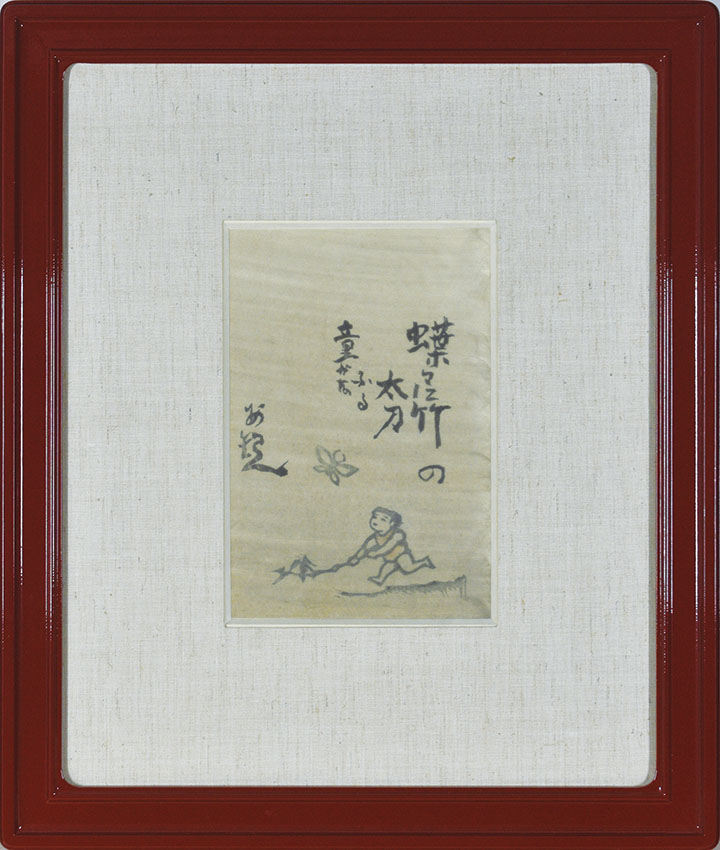 蝶々に竹の
太刀
ふる
童かな